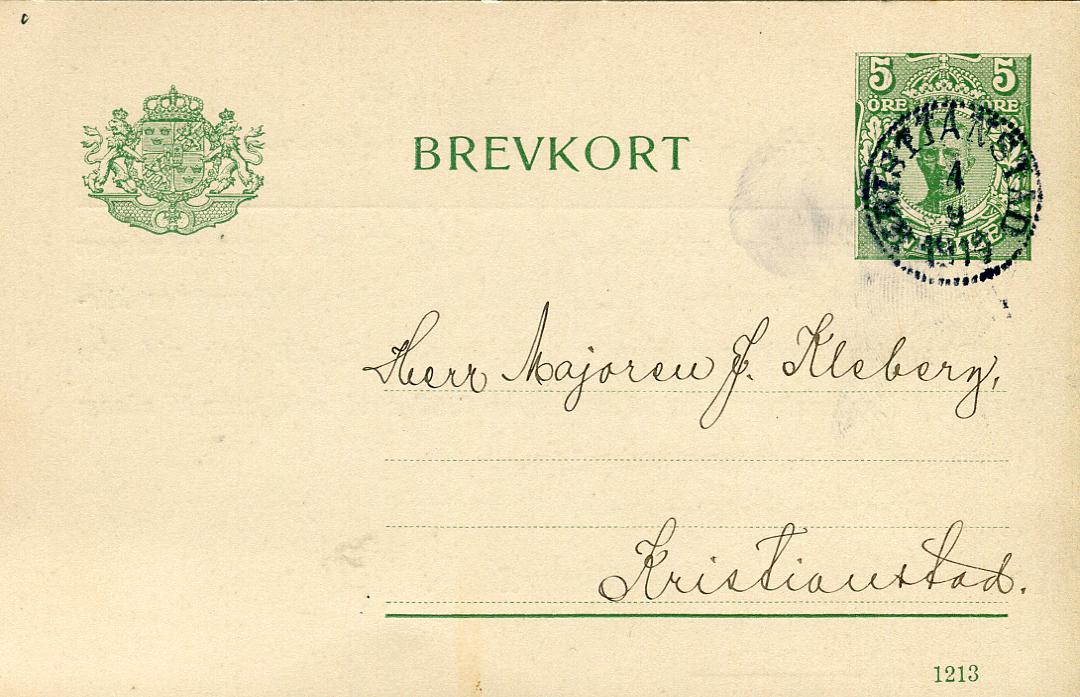 5 5
ÖRE ÖRE
BREVKORT
KRISTIANSTAD
4
9
1914
Herr Majoren J. Kleberg,
Kristianstad.
1213